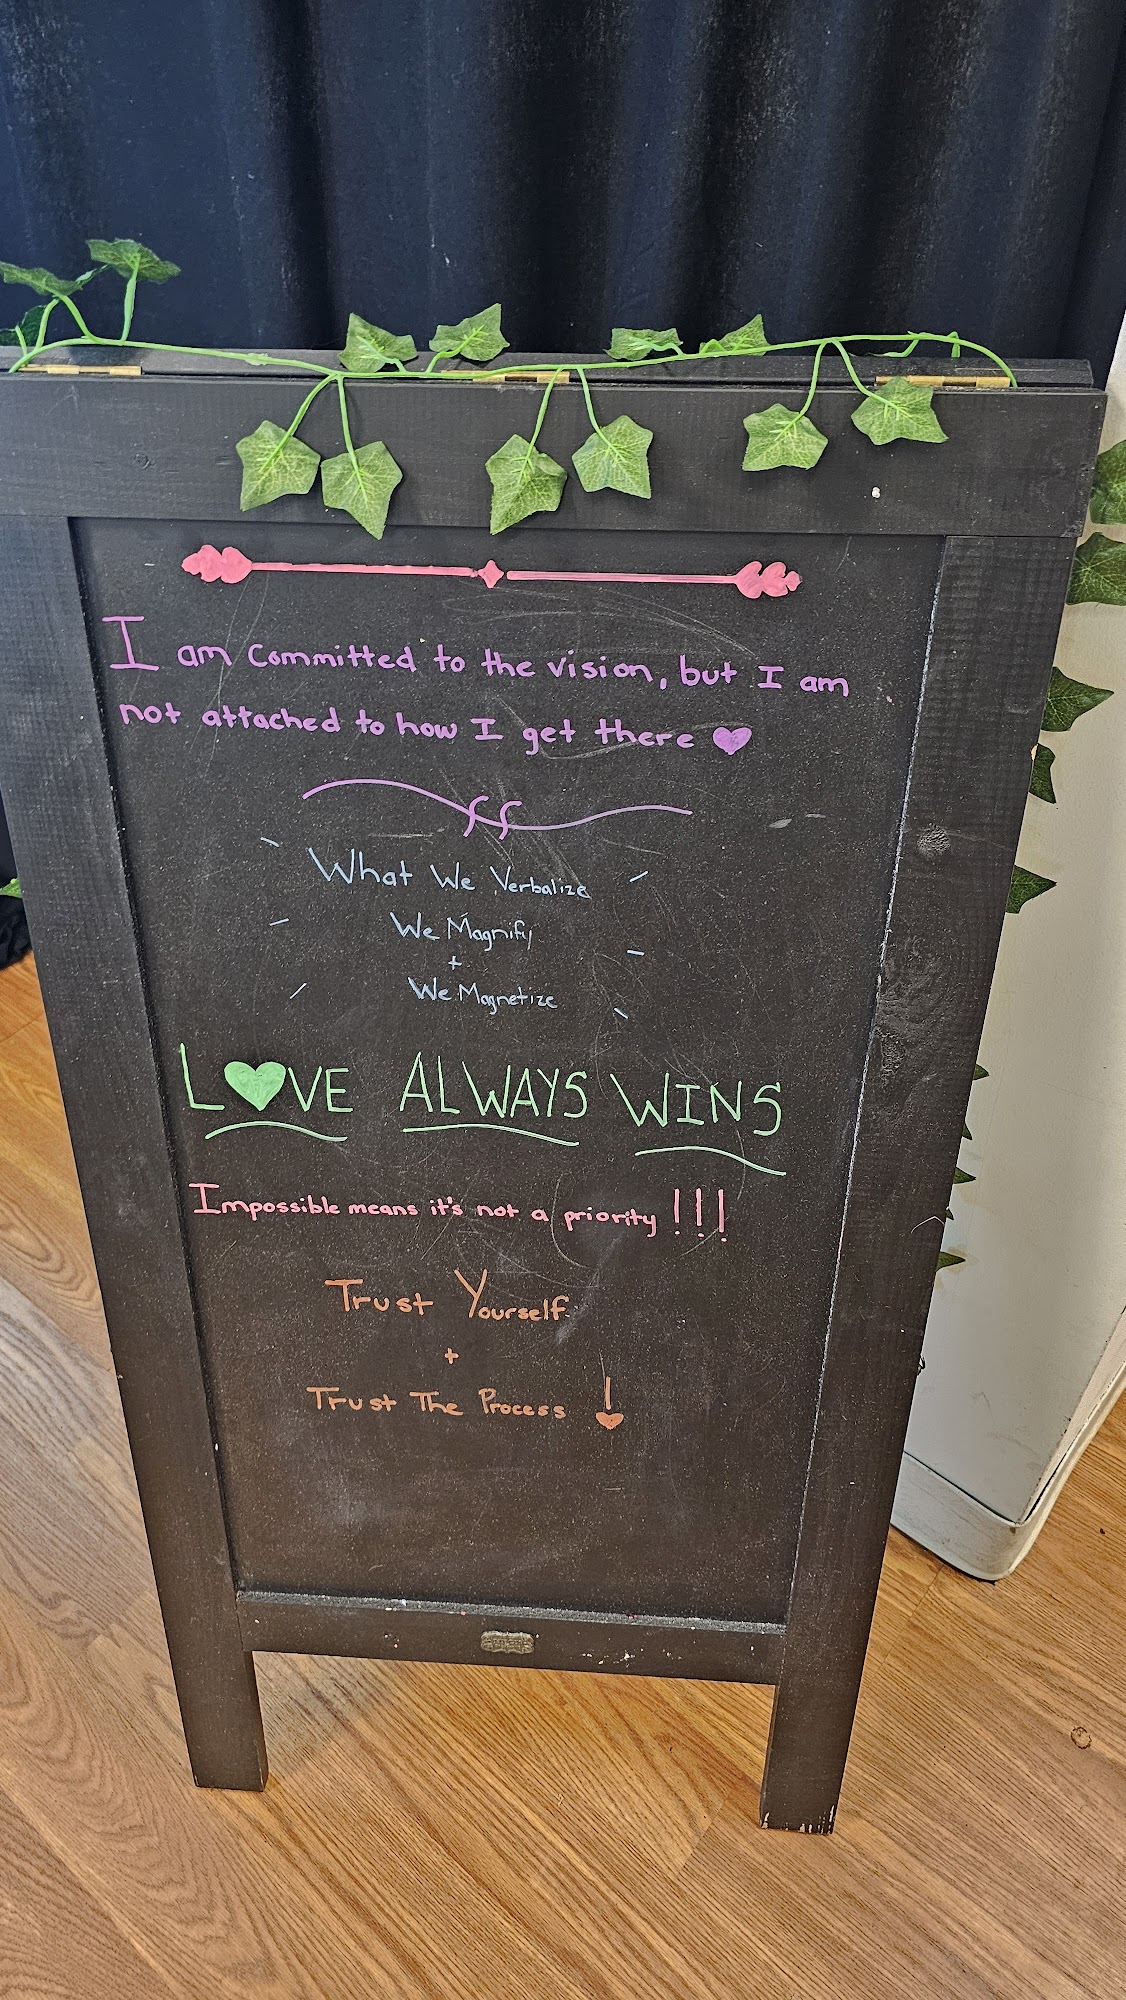 I am committed to the vision, but I am
not attached to how I get there 💜
What We Verbalize
We Magnify
+
We Magnetize
L💚VE ALWAYS WINS
Impossible means it's not a priority !!!
Trust Yourself
+
Trust The Process !